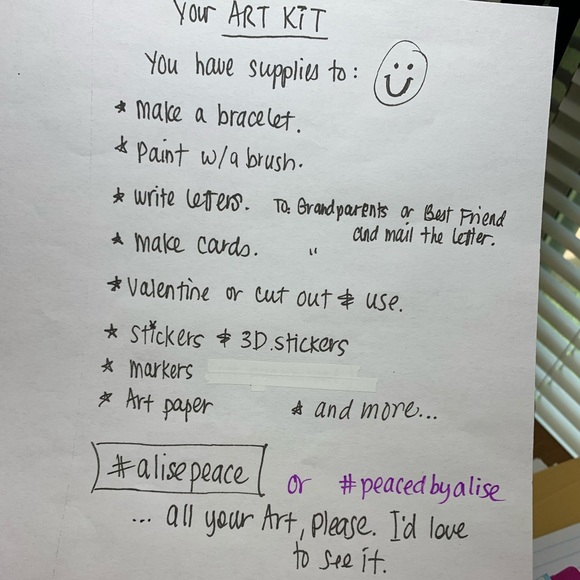 Your ART KIT
You have supplies to:
* make a bracelet.
* Paint w/a brush.
* write letters. To: Grandparents or Best Friend
and mail the letter.
* make cards. "
* Valentine or cut out & use.
* stickers & 3D.stickers
* markers
* Art paper * and more...
#alisepeace or #peacedbyalise
... all your Art, please. I'd love
to see it.